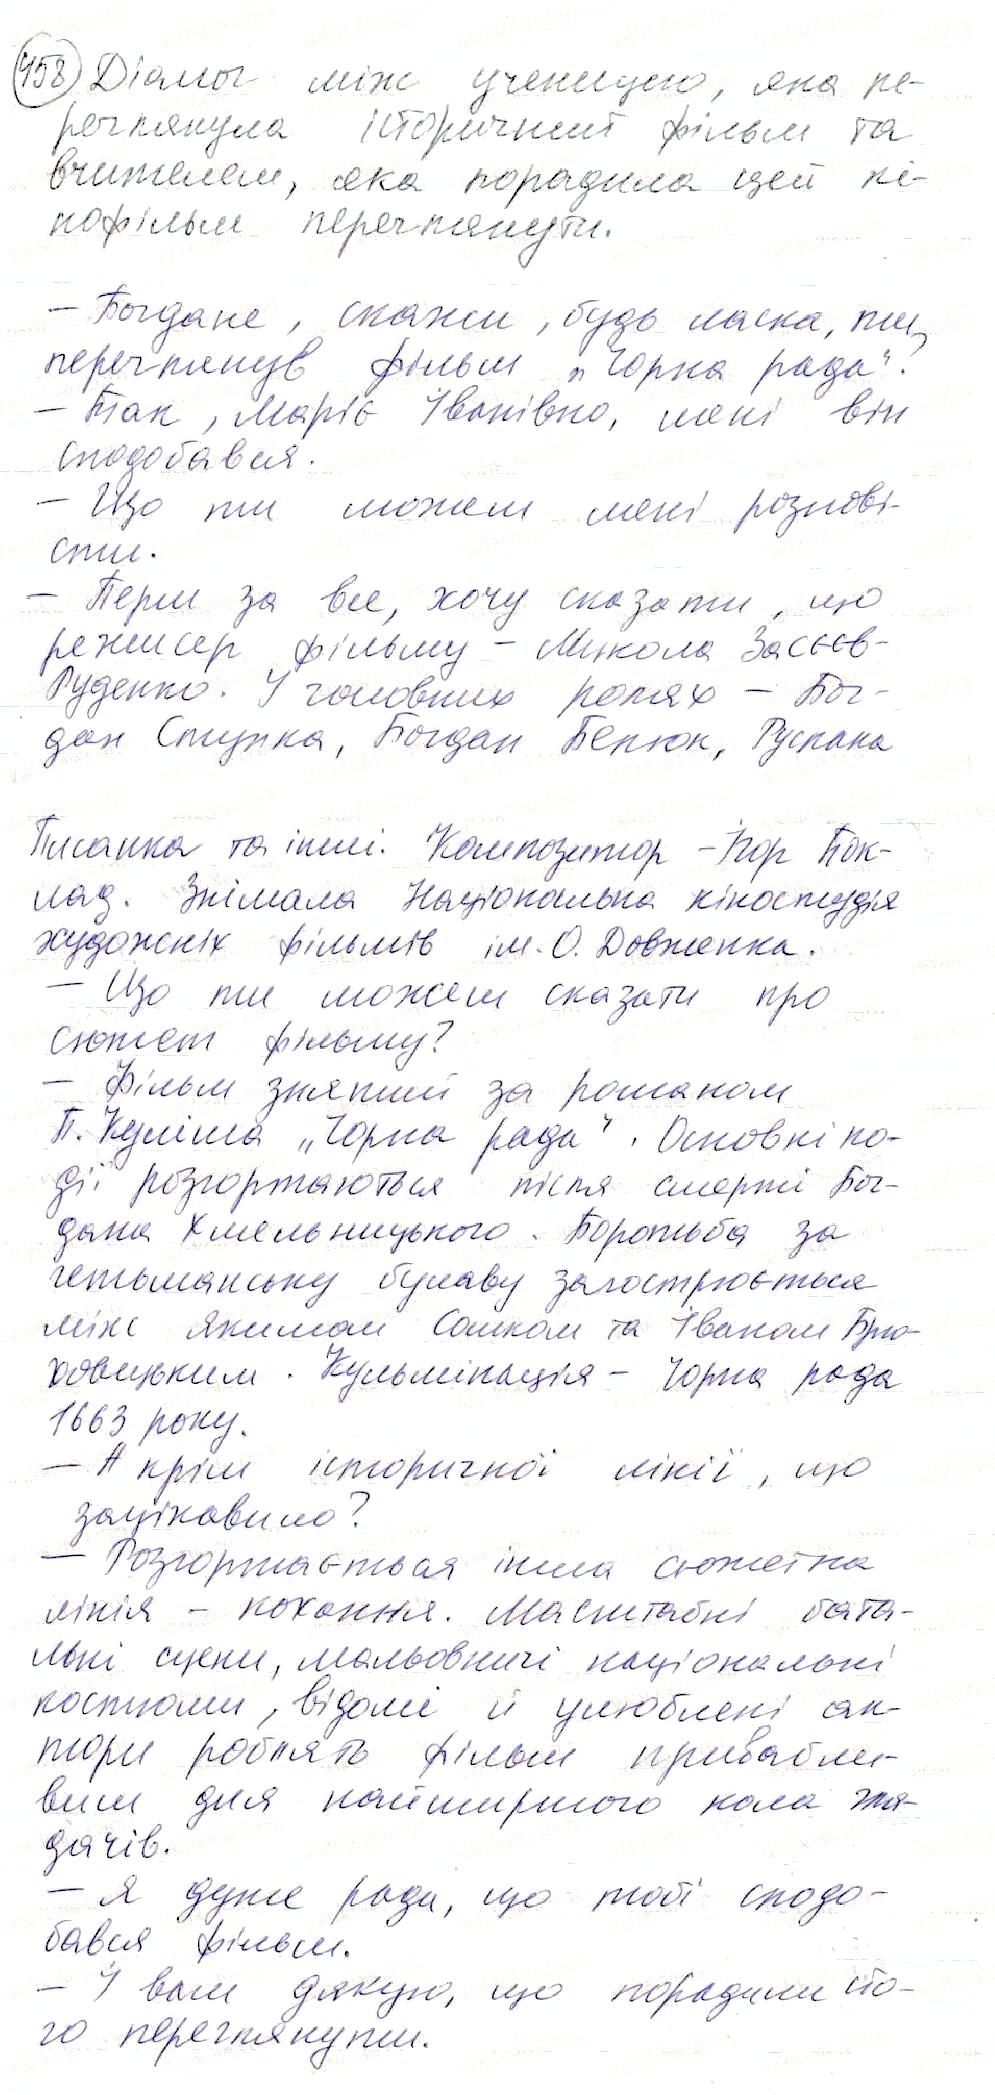 458 Діалог між ученицею, яка пе-
реглянула історичний фільм та
вчителем, яка порадила цей кі-
нофільм переглянути.
– Богдане, скажи, будь ласка, ти
переглянув фільм „Чорна рада".
– Так, Маріє Іванівно, мені він
сподобався.
– Що ти можеш мені розпові-
сти.
– Перш за все, хочу сказати, що
режисер фільму – Микола Засєєв-
Руденко. У головних ролях – Бог-
дан Ступка, Богдан Бенюк, Руслана
Писанка та інші. Композитор – Ігор Пок-
лад. Знімала Національна кіностудія
художніх фільмів ім. О. Довженка.
– Що ти можеш сказати про
сюжет фільму?
– Фільм знятий за романом
П. Куліша „Чорна рада". Основні по-
дії розгортаються після смерті Бог-
дана Хмельницького. Боротьба за
гетьманську булаву загострюється
між Якимом Сомком та Іваном Брю-
ховецьким. Кульмінація – Чорна рада
1663 року.
– А крім історичної лінії, що
зацікавило?
– Розгортається інша сюжетна
лінія – кохання. Масштабні бата-
льні сцени, мальовничі національні
костюми, відомі й улюблені ак-
тори роблять фільм привабли-
вим для найширшого кола гля-
дачів.
– Я дуже рада, що тобі сподо-
бався фільм.
– І вам дякую, що порадили йо-
го переглянути.